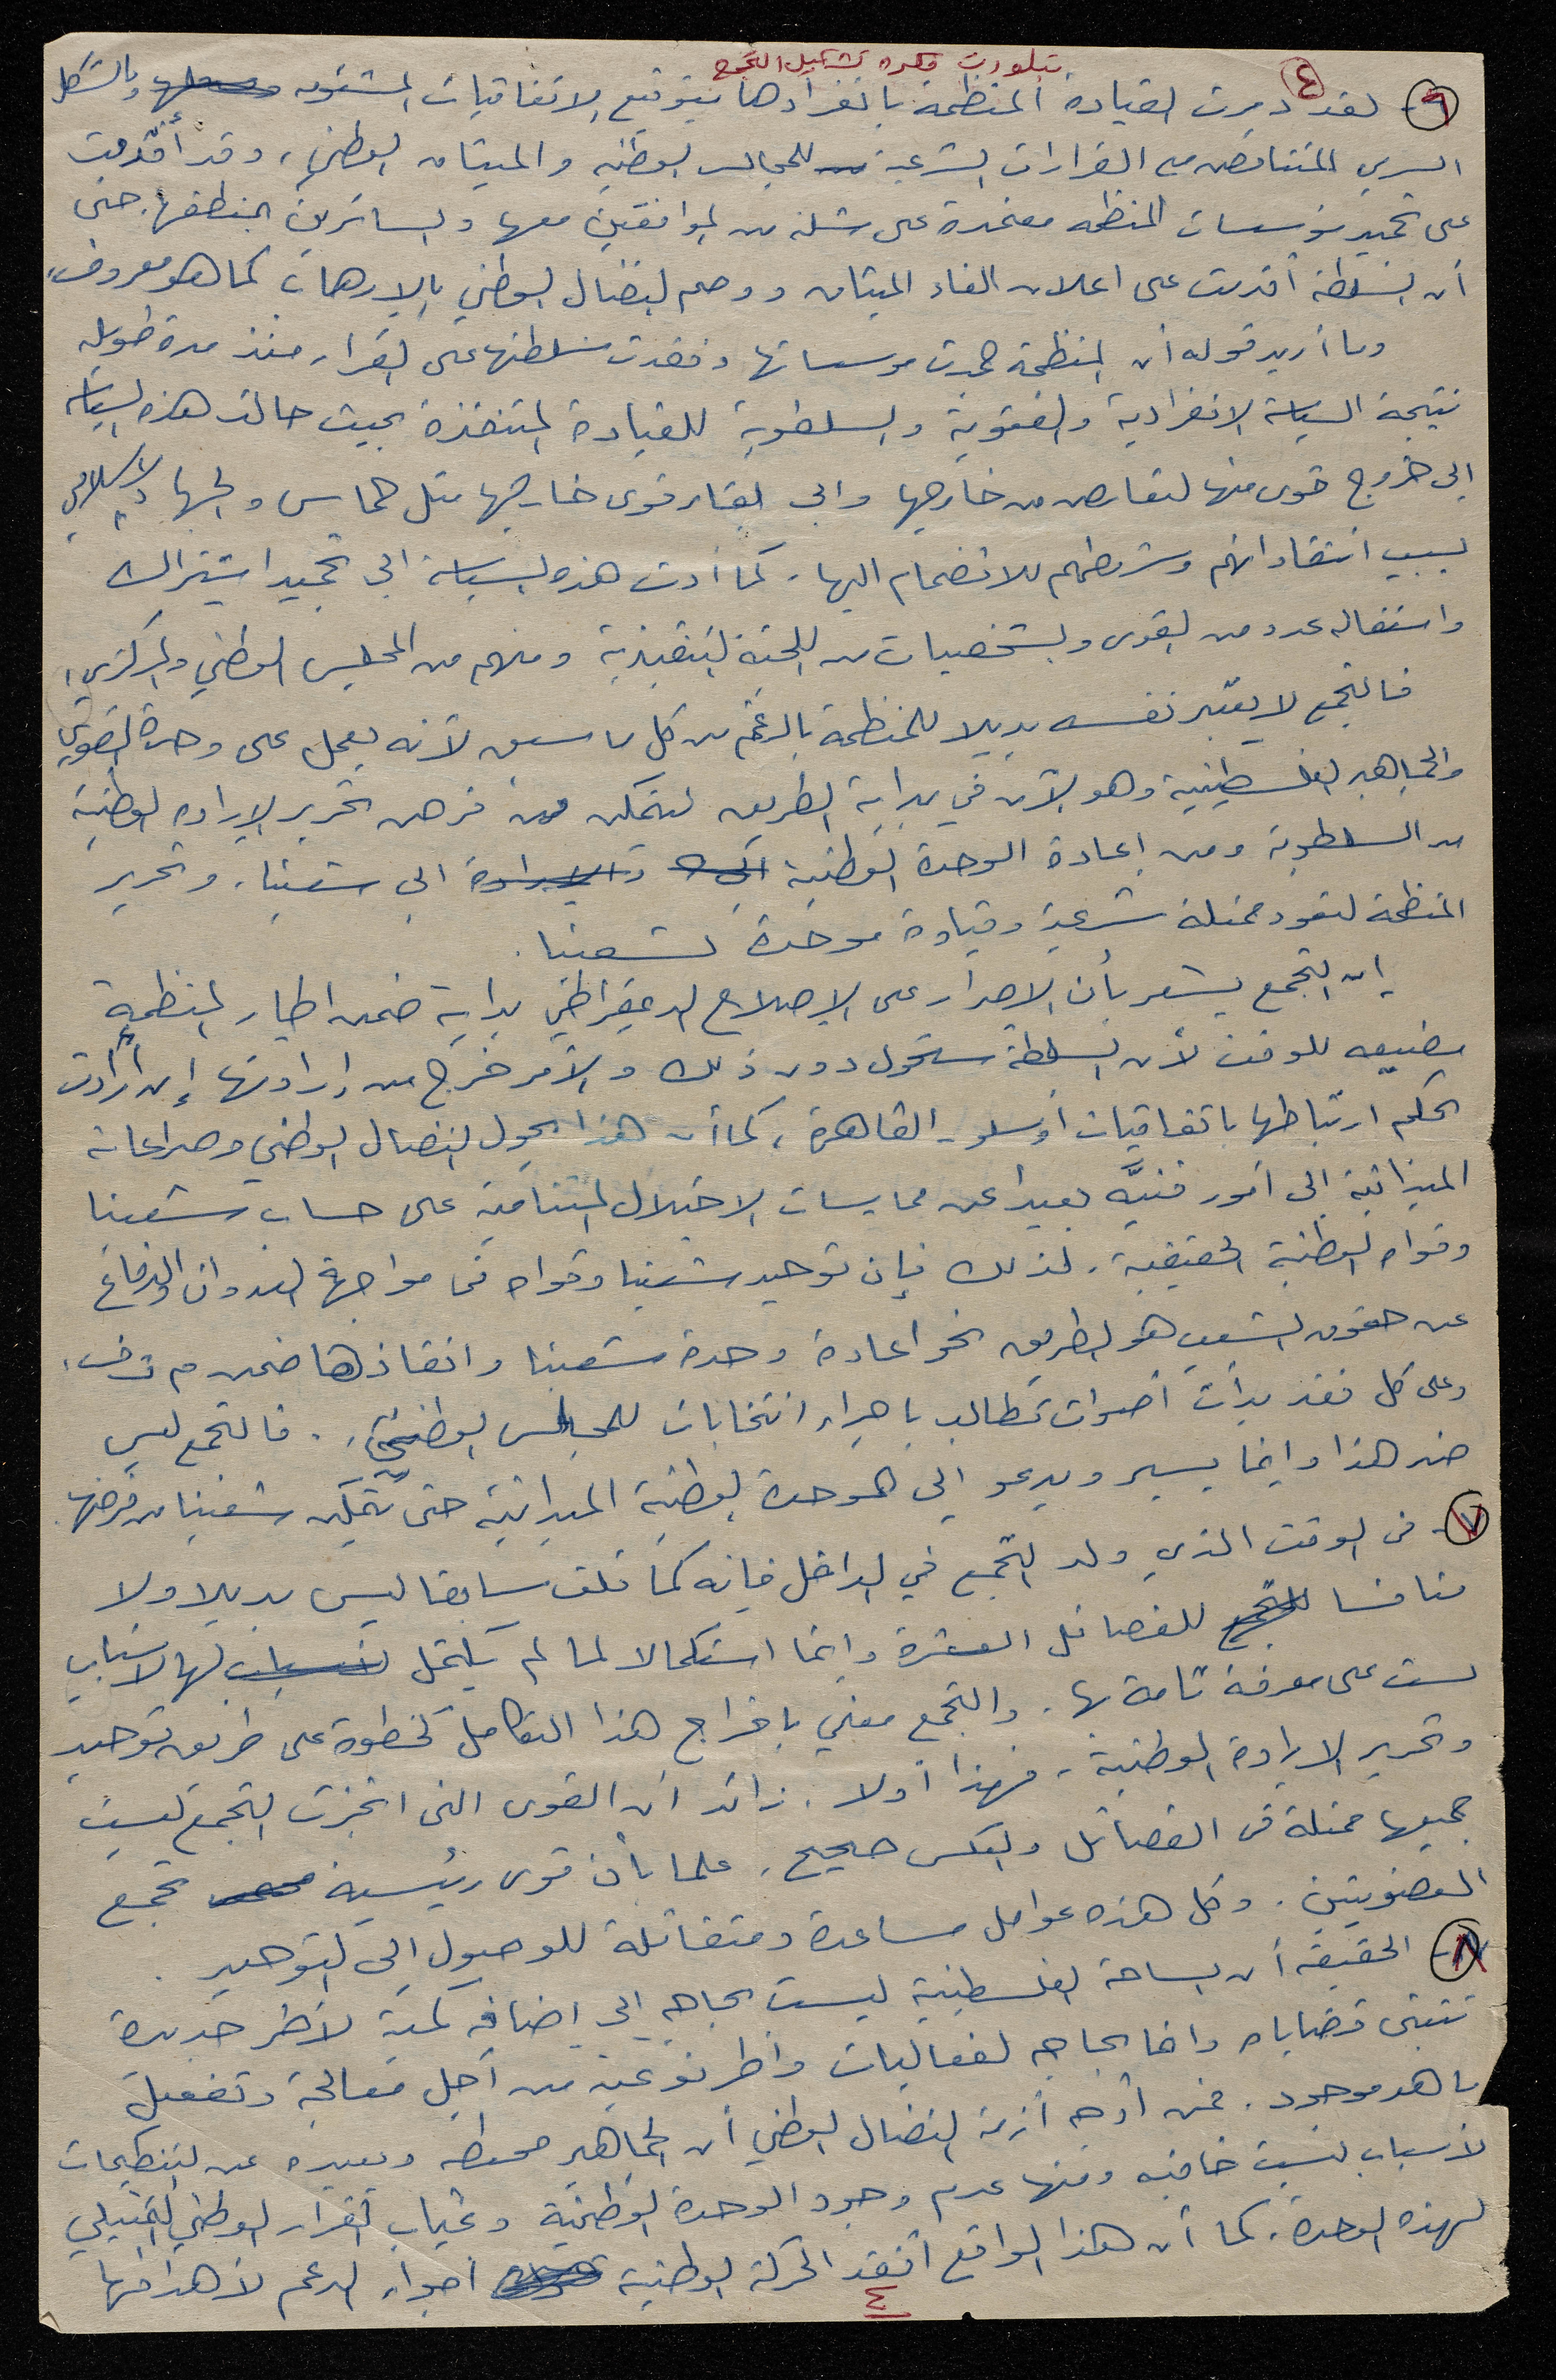 تبلورت فكرة تشكيل التجمع
٤
٦- لقد دمرت القيادة المنظمة بانفرادها بتوقيع الاتفاقيات المشئومة وبالشكل
السري المتناقض مع القرارات الشرعية للمجالس الوطنية والميثاق الوطني، وقد أقدمت
على تجميد مؤسسات المنظمة معتمدة على شلة من الموافقين معها والسائرين بمنطقها. حتى
أن السلطة أقدمت على اعلان الغاء الميثاق ووصم النضال الوطني بالإرهاب كما هو معروف.
وما أريد قوله أن المنظمة جمدت مؤسساتها وفقدت سلطتها على القرار منذ مدة طويلة
نتيجة السياسة الانفرادية والفئوية والسلطوية للقيادة المتنفذة بحيث حالت هذه السياسة
الى خروج قوى منها لتعارض من خارجها والى بقاء قوى خارجها مثل حماس والجهاد الإسلامي
بسبب انتقاداتهم وشروطهم للانضمام اليها. كما أدت هذه السياسة الى تجميد اشتراك
واستقالة عدد من القوى والشخصيات من اللجنة التنفيذية ومنهم من المجلس الوطني والمركزي،
فالتجمع لا يعتبر نفسه بديلا للمنظمة بالرغم من كل ما سبق لأنه يعمل على وحدة القوى
والجماهير الفلسطينية وهو الآن في بداية الطريق لتتمكن من فرض تحرير الإرادة الوطنية
من السلطوية ومن إعادة الوحدة الوطنية والإرادة الى شعبنا. وتحرير
المنظمة لتعود ممثلة شرعية وقيادة موحدة لشعبنا.
إن التجمع يشعر بأن الاصرار على الإصلاح الديمقراطي بداية ضمن اطار المنظمة
مضيعه للوقت لأن السلطة ستحول دون ذلك والأمر خرج من إرادتها إن أرادت
بحكم ارتباطها باتفاقيات أوسلو- القاهرة، كما أن هذا يحول النضال الوطني وصراعاته
الميدانية الى أمور فنيّه بعيدا عن ممارسات الاحتلال المتنامية على حساب شعبنا
وقواه الوطنية الحقيقية. لذلك فإن توحيد شعبنا وقواه في مواجهة العدوان والدفاع
عن حقوق الشعب هو الطريق نحو اعادة وحدة شعبنا وانقاذها ضمن م ت ف.
وعلى كل فقد بدأت أصوات تطالب باجراء انتخابات للمجلس الوطني. فالتجمع ليس
ضد هذا وإنما يسير ويدعو الى الوحدة الوطنية الميدانية حتى يتمكن شعبنا من فرضها.
٧- في الوقت الذي ولد التجمع في الداخل فإنه كما قلت سابقا ليس بديلا ولا
منافسا للفصائل العشرة وانما استكمالا لما لم يكتمل لها لأسباب
لست على معرفة تامة بها. والتجمع معني بإخراج هذا التكامل كخطوة على طريق توحيد
وتحرير الإرادة الوطنية، فهذا أولا. زائد أن القوى التي انجزت التجمع ليست
جميعها ممثلة في الفصائل والعكس صحيح. علما بأن قوى رئيسية تجمع
العضويتين. وكل هذه عوامل مساعدة ومتفائلة للوصول الى التوحيد.
٨- الحقيقة أن الساحة الفلسطينية ليست بحاجه الى إضافة كمية لأطر جديدة
تتبنى قضاياه وانما بحاجه لفعاليات وأطر نوعية من أجل معالجة وتفعيل
ما هو موجود. فمن أوجه أزمة النضال الوطني أن الجماهير محبطه وبعيده عن التنظيمات
لأسباب ليست خافيه ومنها عدم وجود الوحدة الوطنية وغياب القرار الوطني التمثيلي
لهذه الوحدة. كما أن هذا الواقع أفقد الحركة الوطنية أجواء الدعم لأهدافها
٤